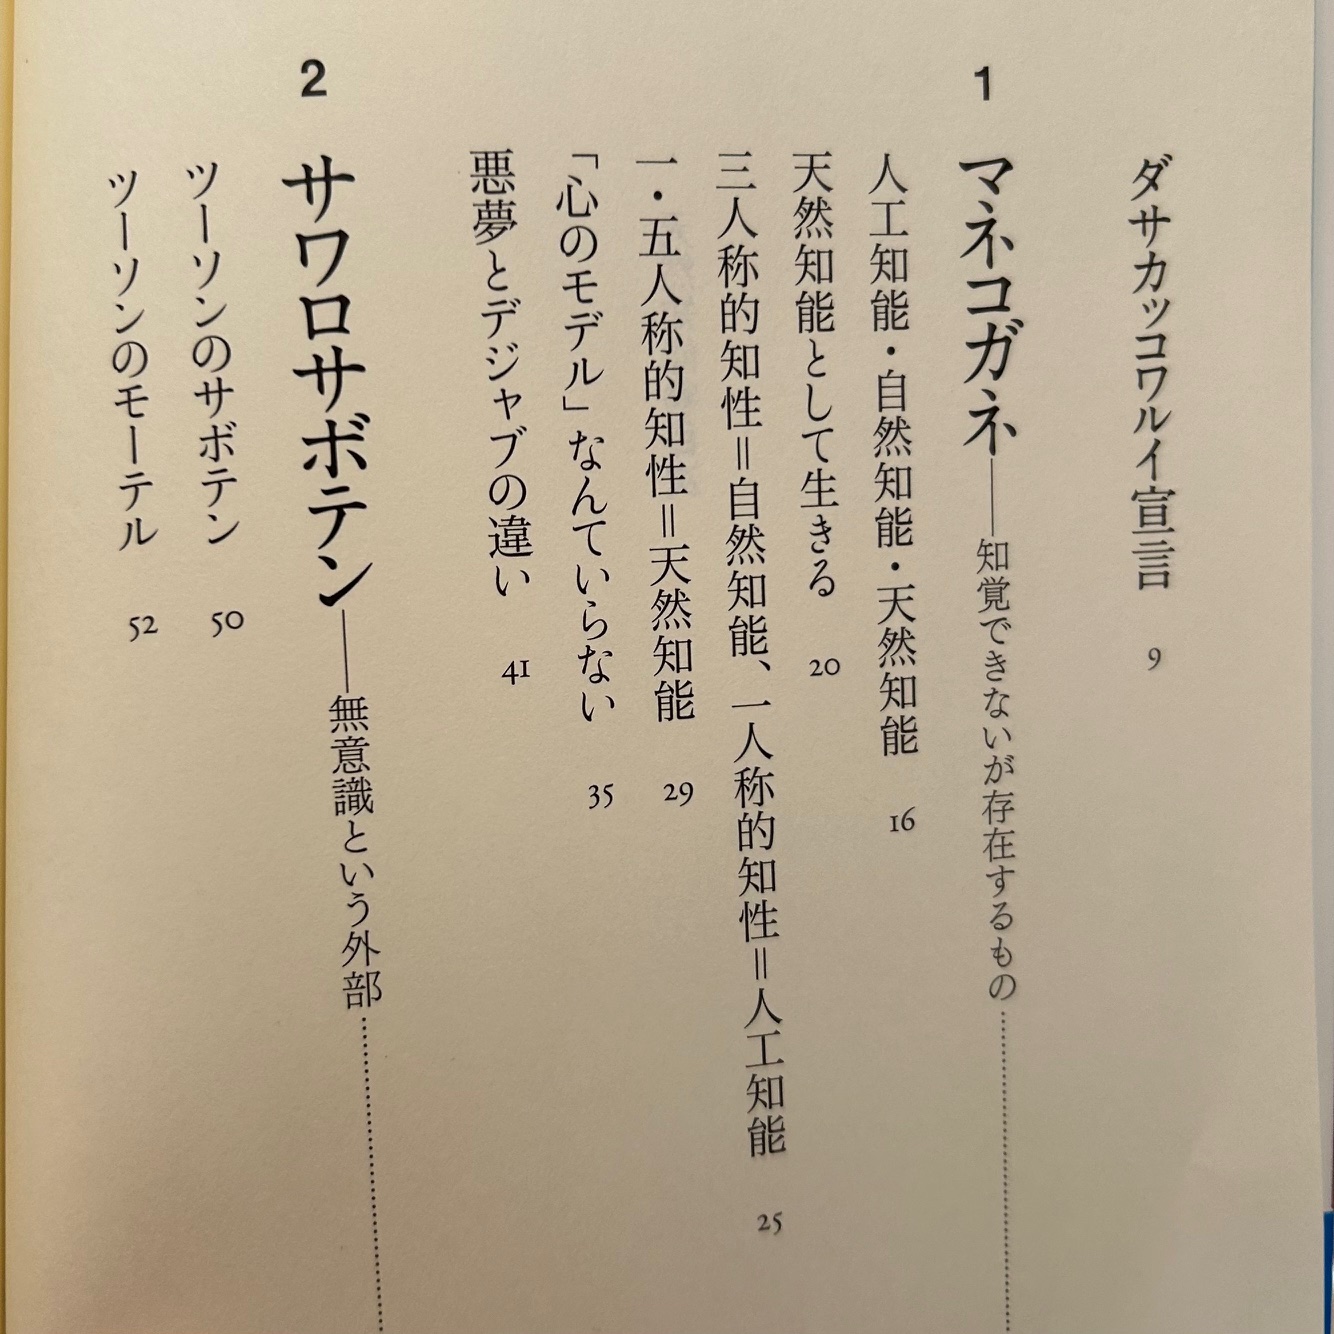 ダサカッコワルイ宣言 9
1 マネコガネ──知覚できないが存在するもの
人工知能・自然知能・天然知能 16
天然知能として生きる 20
三人称的知性＝自然知能、一人称的知性＝人工知能 25
一・五人称的知性＝天然知能 29
「心のモデル」なんていらない 35
悪夢とデジャブの違い 41
2 サワロサボテン──無意識という外部
ツーソンのサボテン 50
ツーソンのモーテル 52